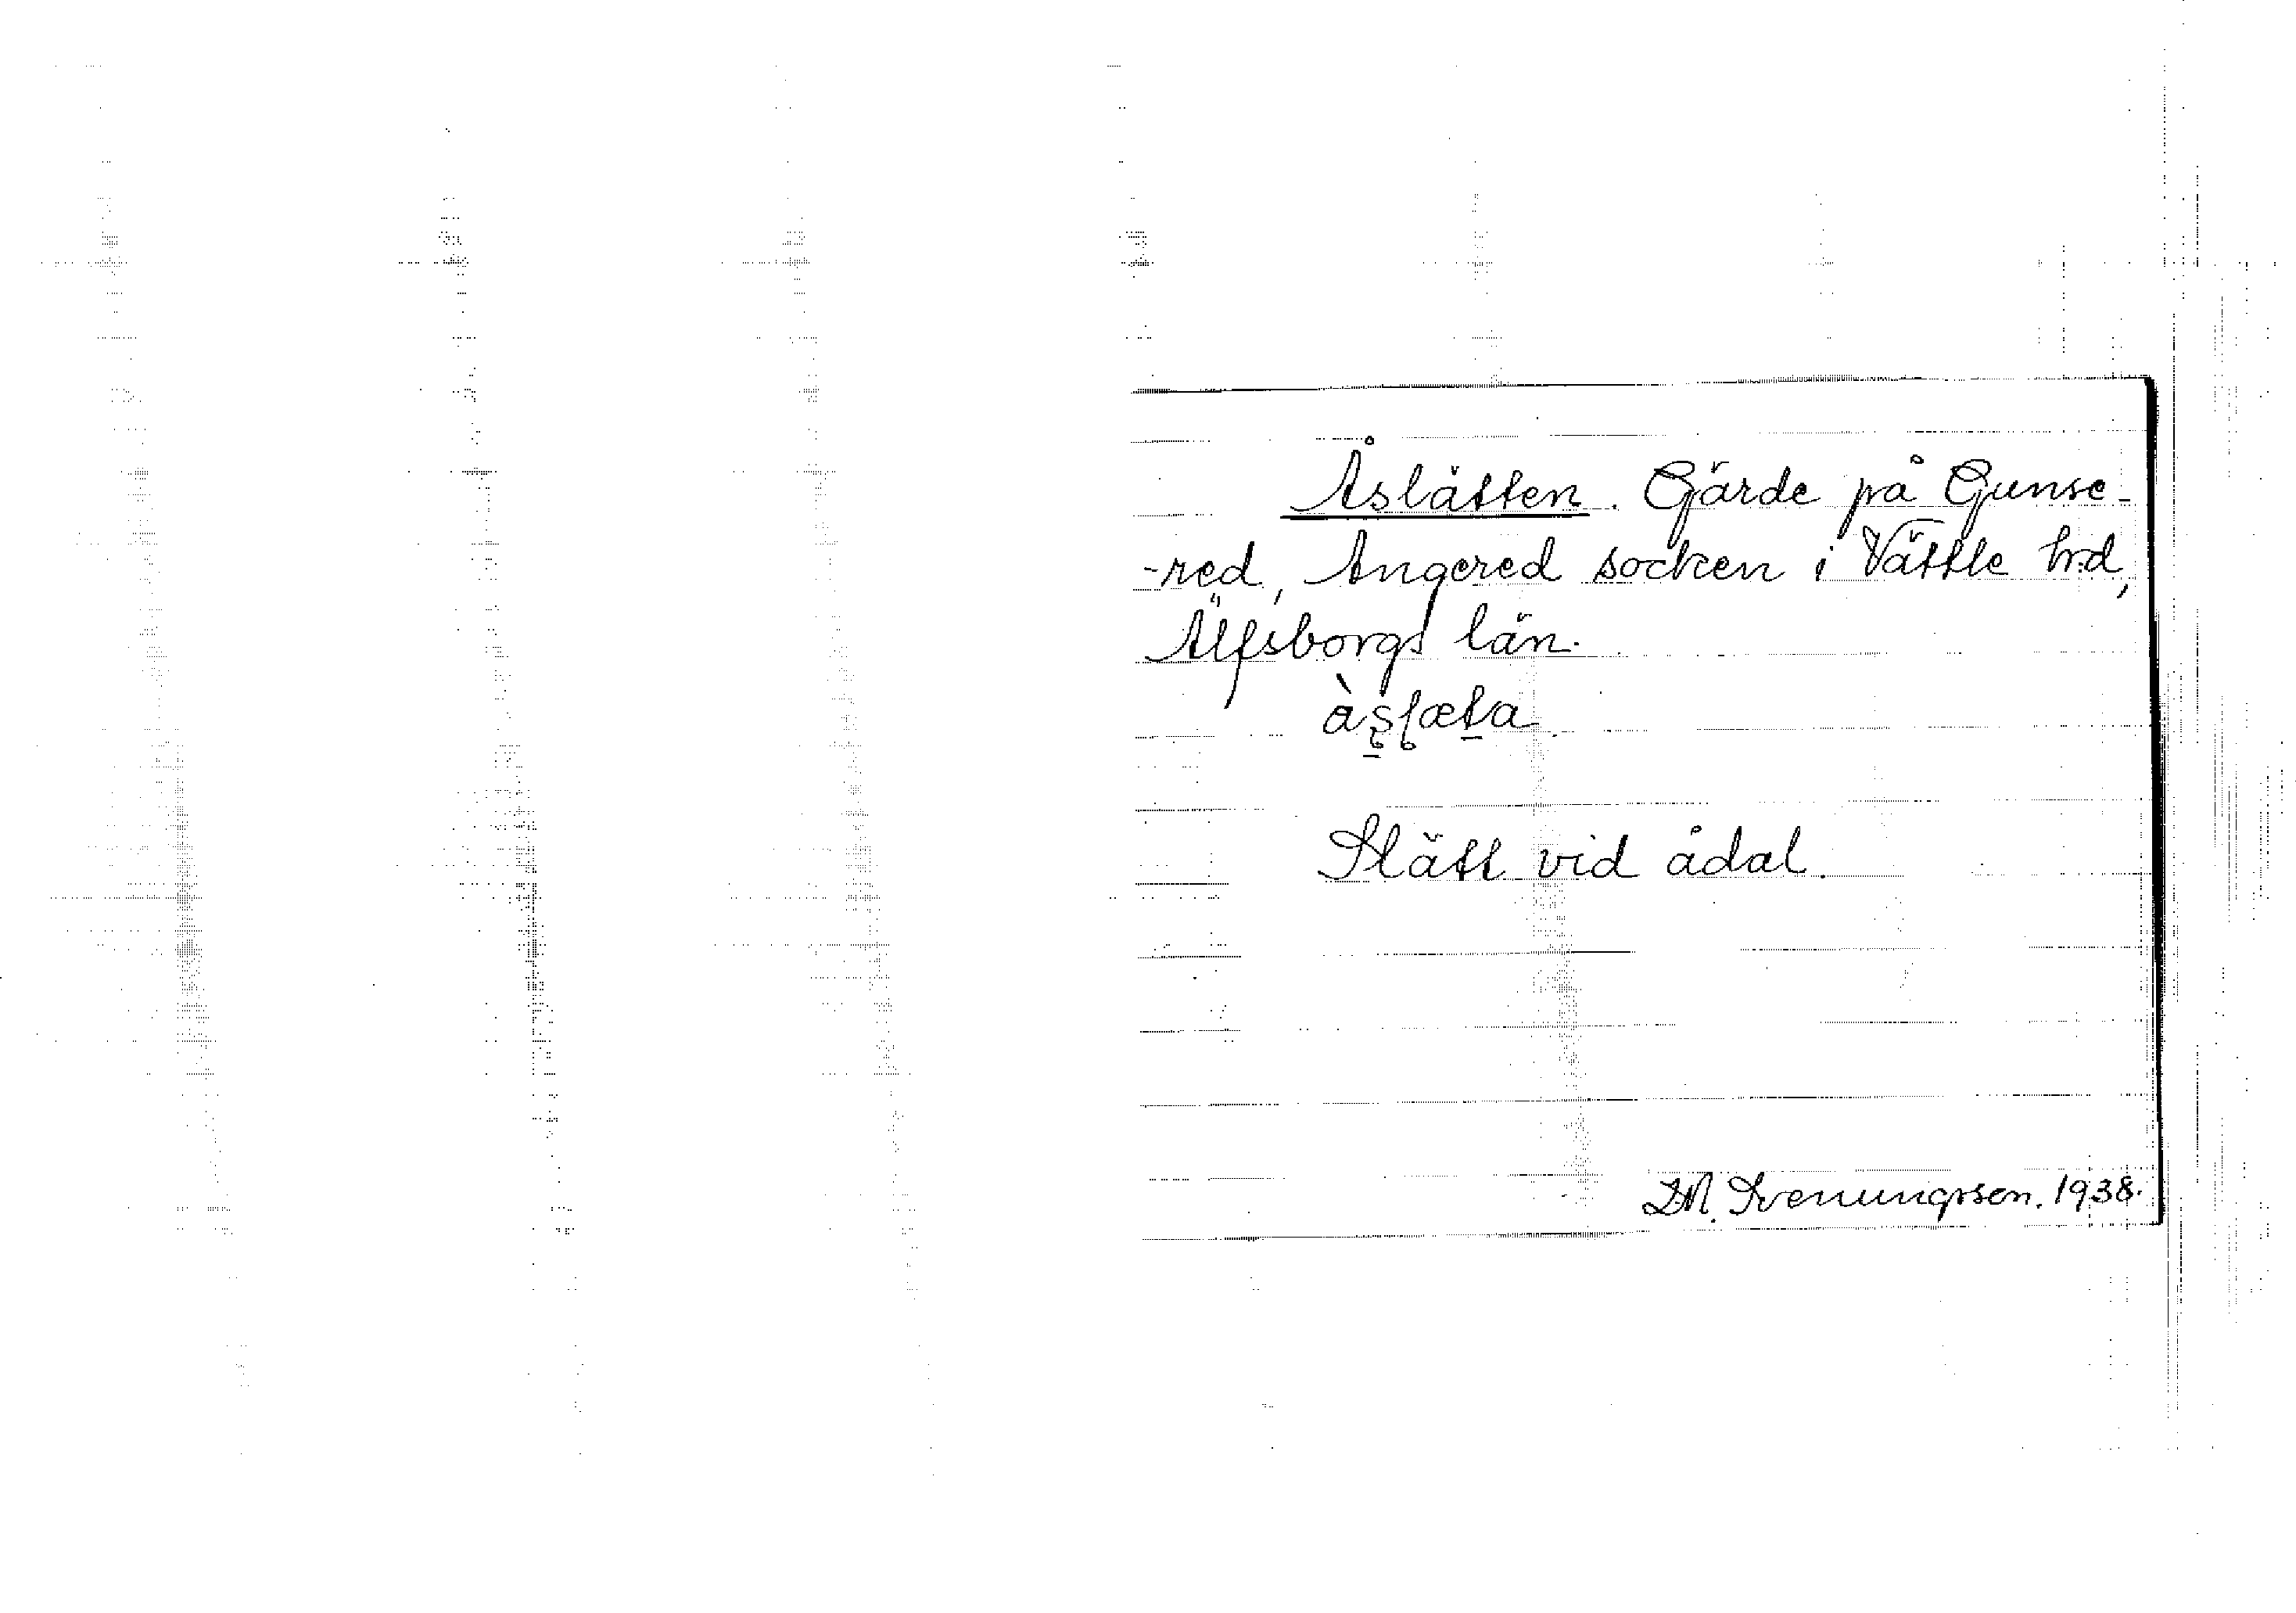 Åslätten. Gärde på Gunse-
-red, Angered socken i Vättle hrd,
Älfsborgs län.
Slätt vid ådal.
Svenungsson. 1938.